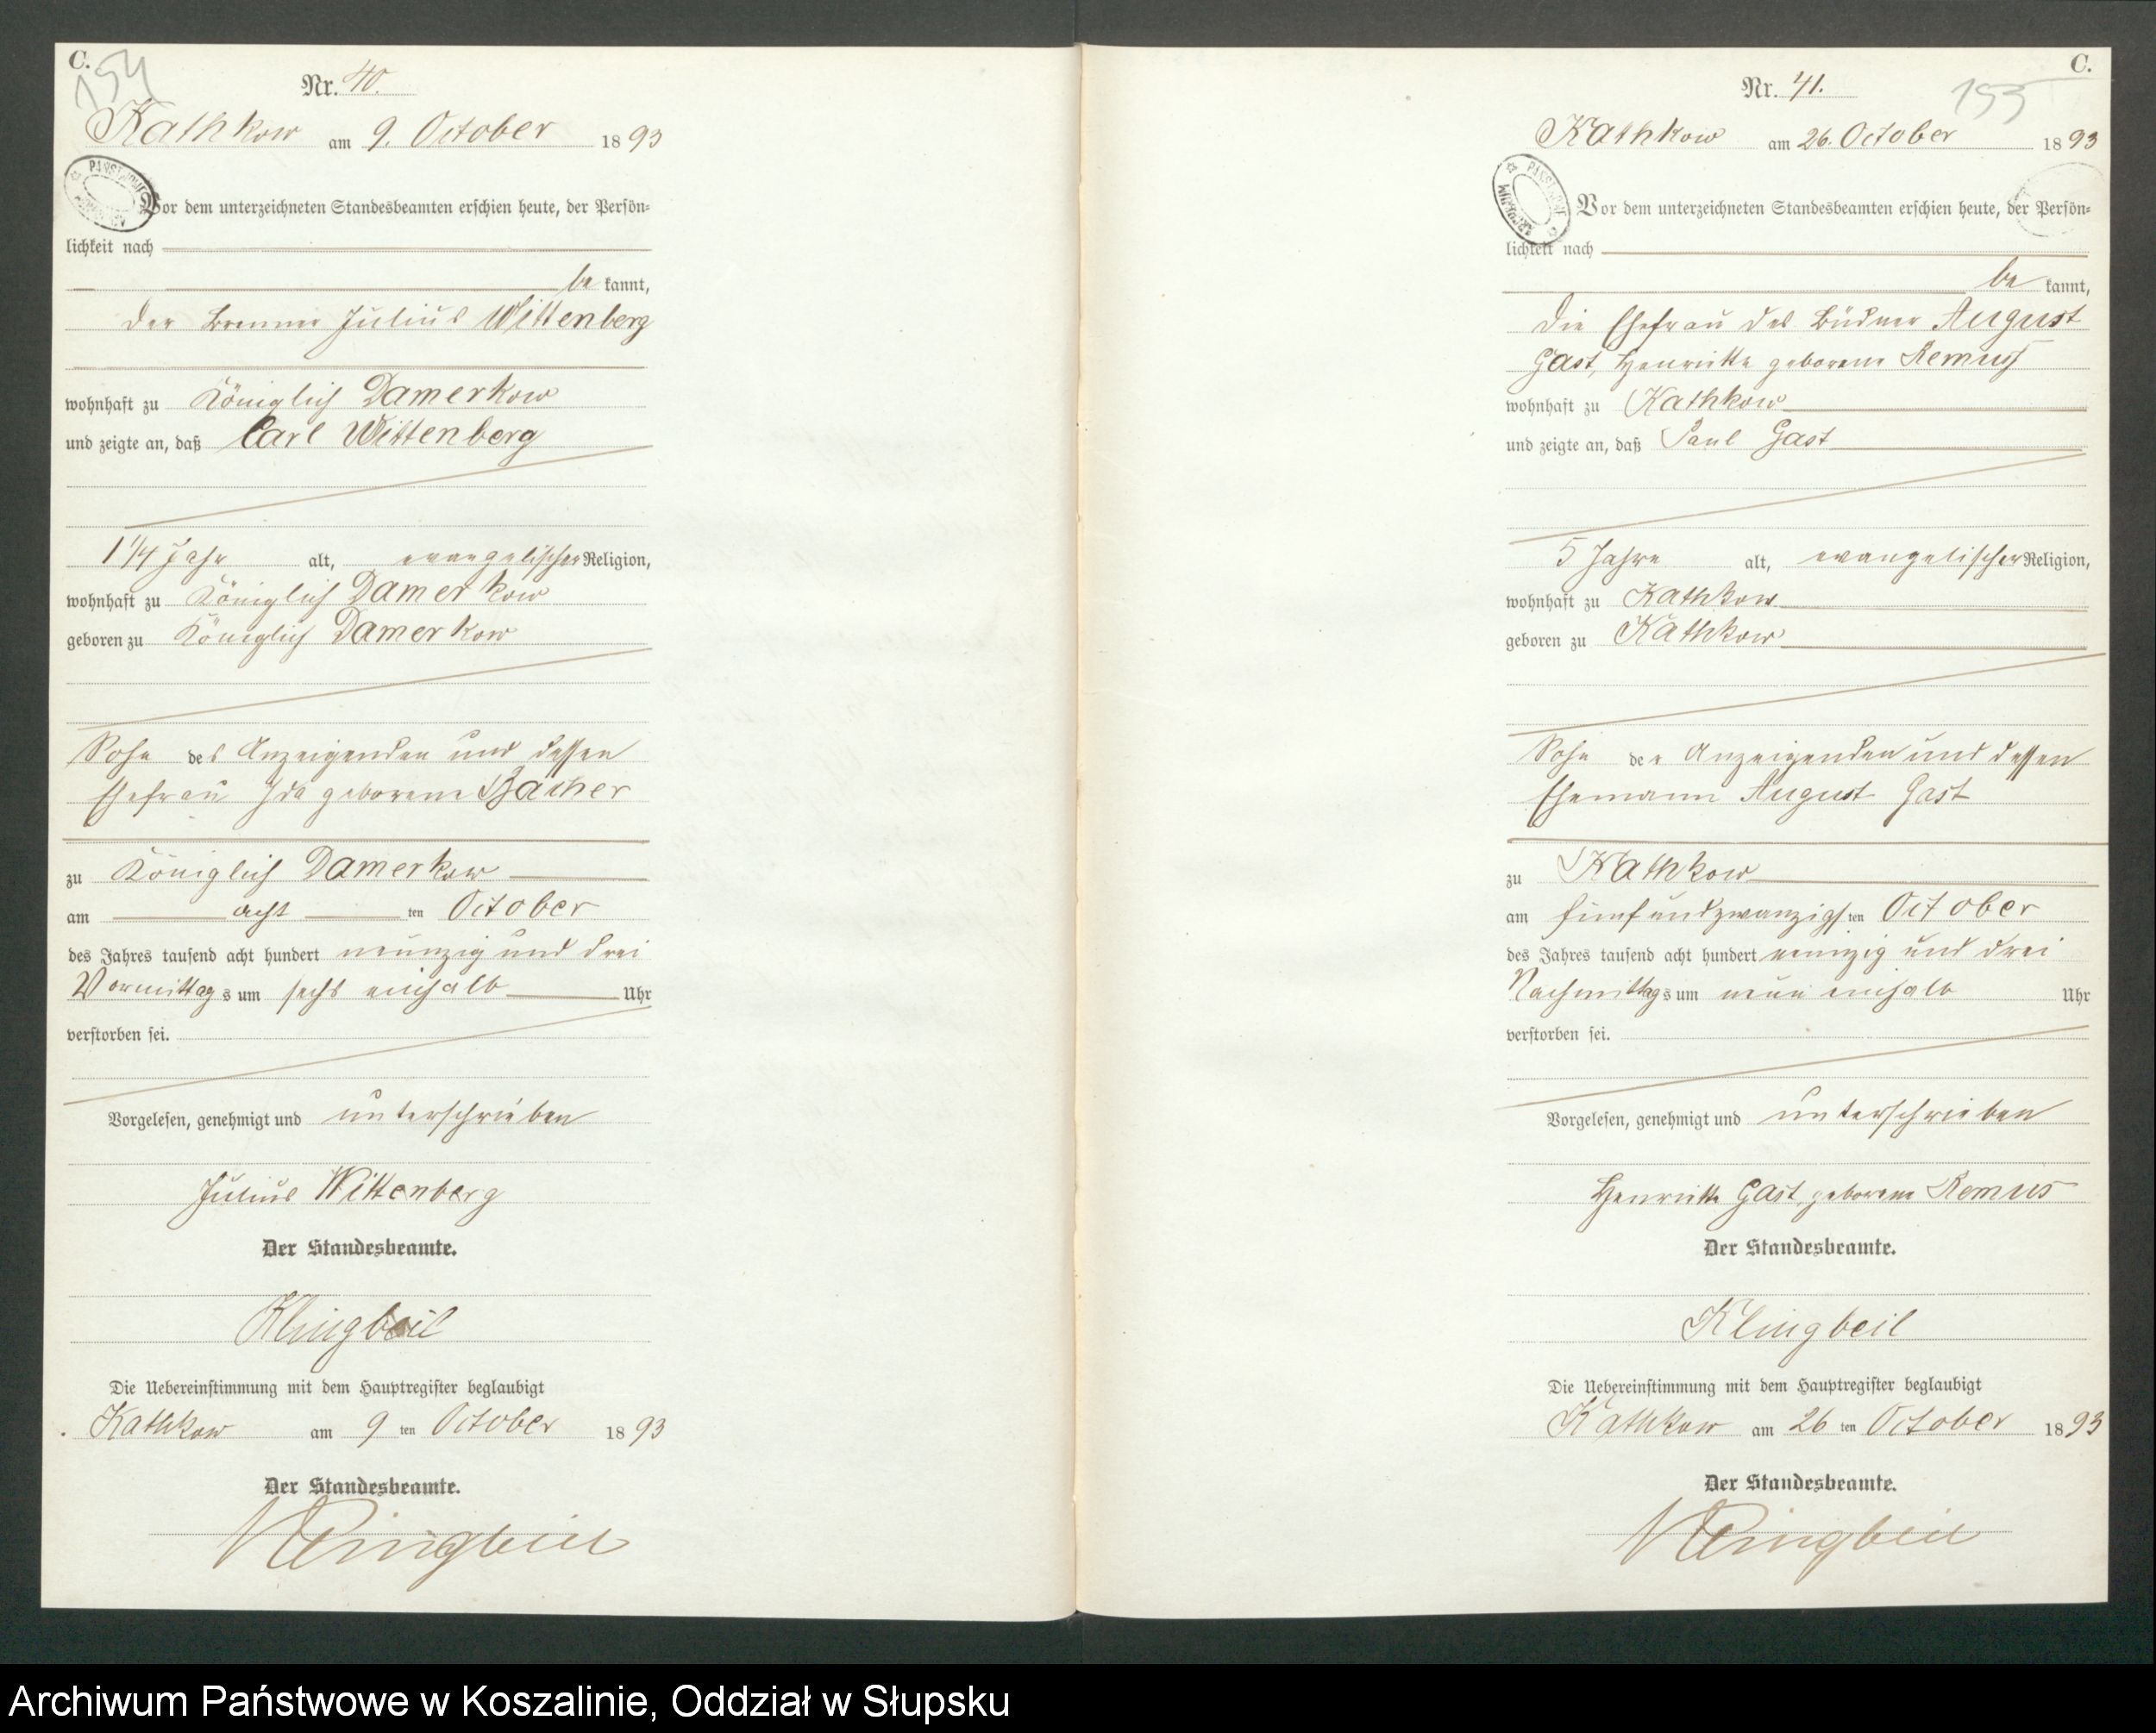 C.
154
Nr. 40.
Kathkow am 9. October 1893
Vor dem unterzeichneten Standesbeamten erschien heute, der Persön-
lichkeit nach
bekannt,
der Brenner Julius Wittenberg
wohnhaft zu Königlich Damerkow
und zeigte an, daß Carl Wittenberg
1 1/4 Jahr alt, evangelischer Religion,
wohnhaft zu Königlich Damerkow
geboren zu Königlich Damerkow
Sohn des Anzeigenden und dessen
Ehefrau Ida geborene
zu Königlich Damerkow
am acht ten October
des Jahres tausend acht hundert neunzig und drei
Vormittags um sechs einhalb Uhr
verstorben sei.
Vorgelesen, genehmigt und unterschrieben
Julius Wittenberg
Der Standesbeamte.
Klingbeil
Die Uebereinstimmung mit dem Hauptregister beglaubigt
Kathkow am 9 ten October 1893
Der Standesbeamte.
Klingbeil
C.
155
Nr. 41.
Kathkow am 26. October 1893
Vor dem unterzeichneten Standesbeamten erschien heute, der Persön-
lichkeit nach
bekannt,
die Ehefrau des Büdner August
Gast, Henriette geborene Remus
wohnhaft zu Kathkow
und zeigte an, daß Paul Gast
5 Jahre alt, evangelischer Religion,
wohnhaft zu Kathkow
geboren zu Kathkow
Sohn der Anzeigenden und dessen
Ehemann August Gast
zu Kathkow
am fünfundzwanzigsten October
des Jahres tausend acht hundert neunzig und drei
Nachmittags um neun einhalb Uhr
verstorben sei.
Vorgelesen, genehmigt und unterschrieben
Henriette Gast, geborene Remus
Der Standesbeamte.
Klingbeil
Die Uebereinstimmung mit dem Hauptregister beglaubigt
Kathkow am 26 ten October 1893
Der Standesbeamte.
Klingbeil
Archiwum Państwowe w Koszalinie, Oddział w Słupsku